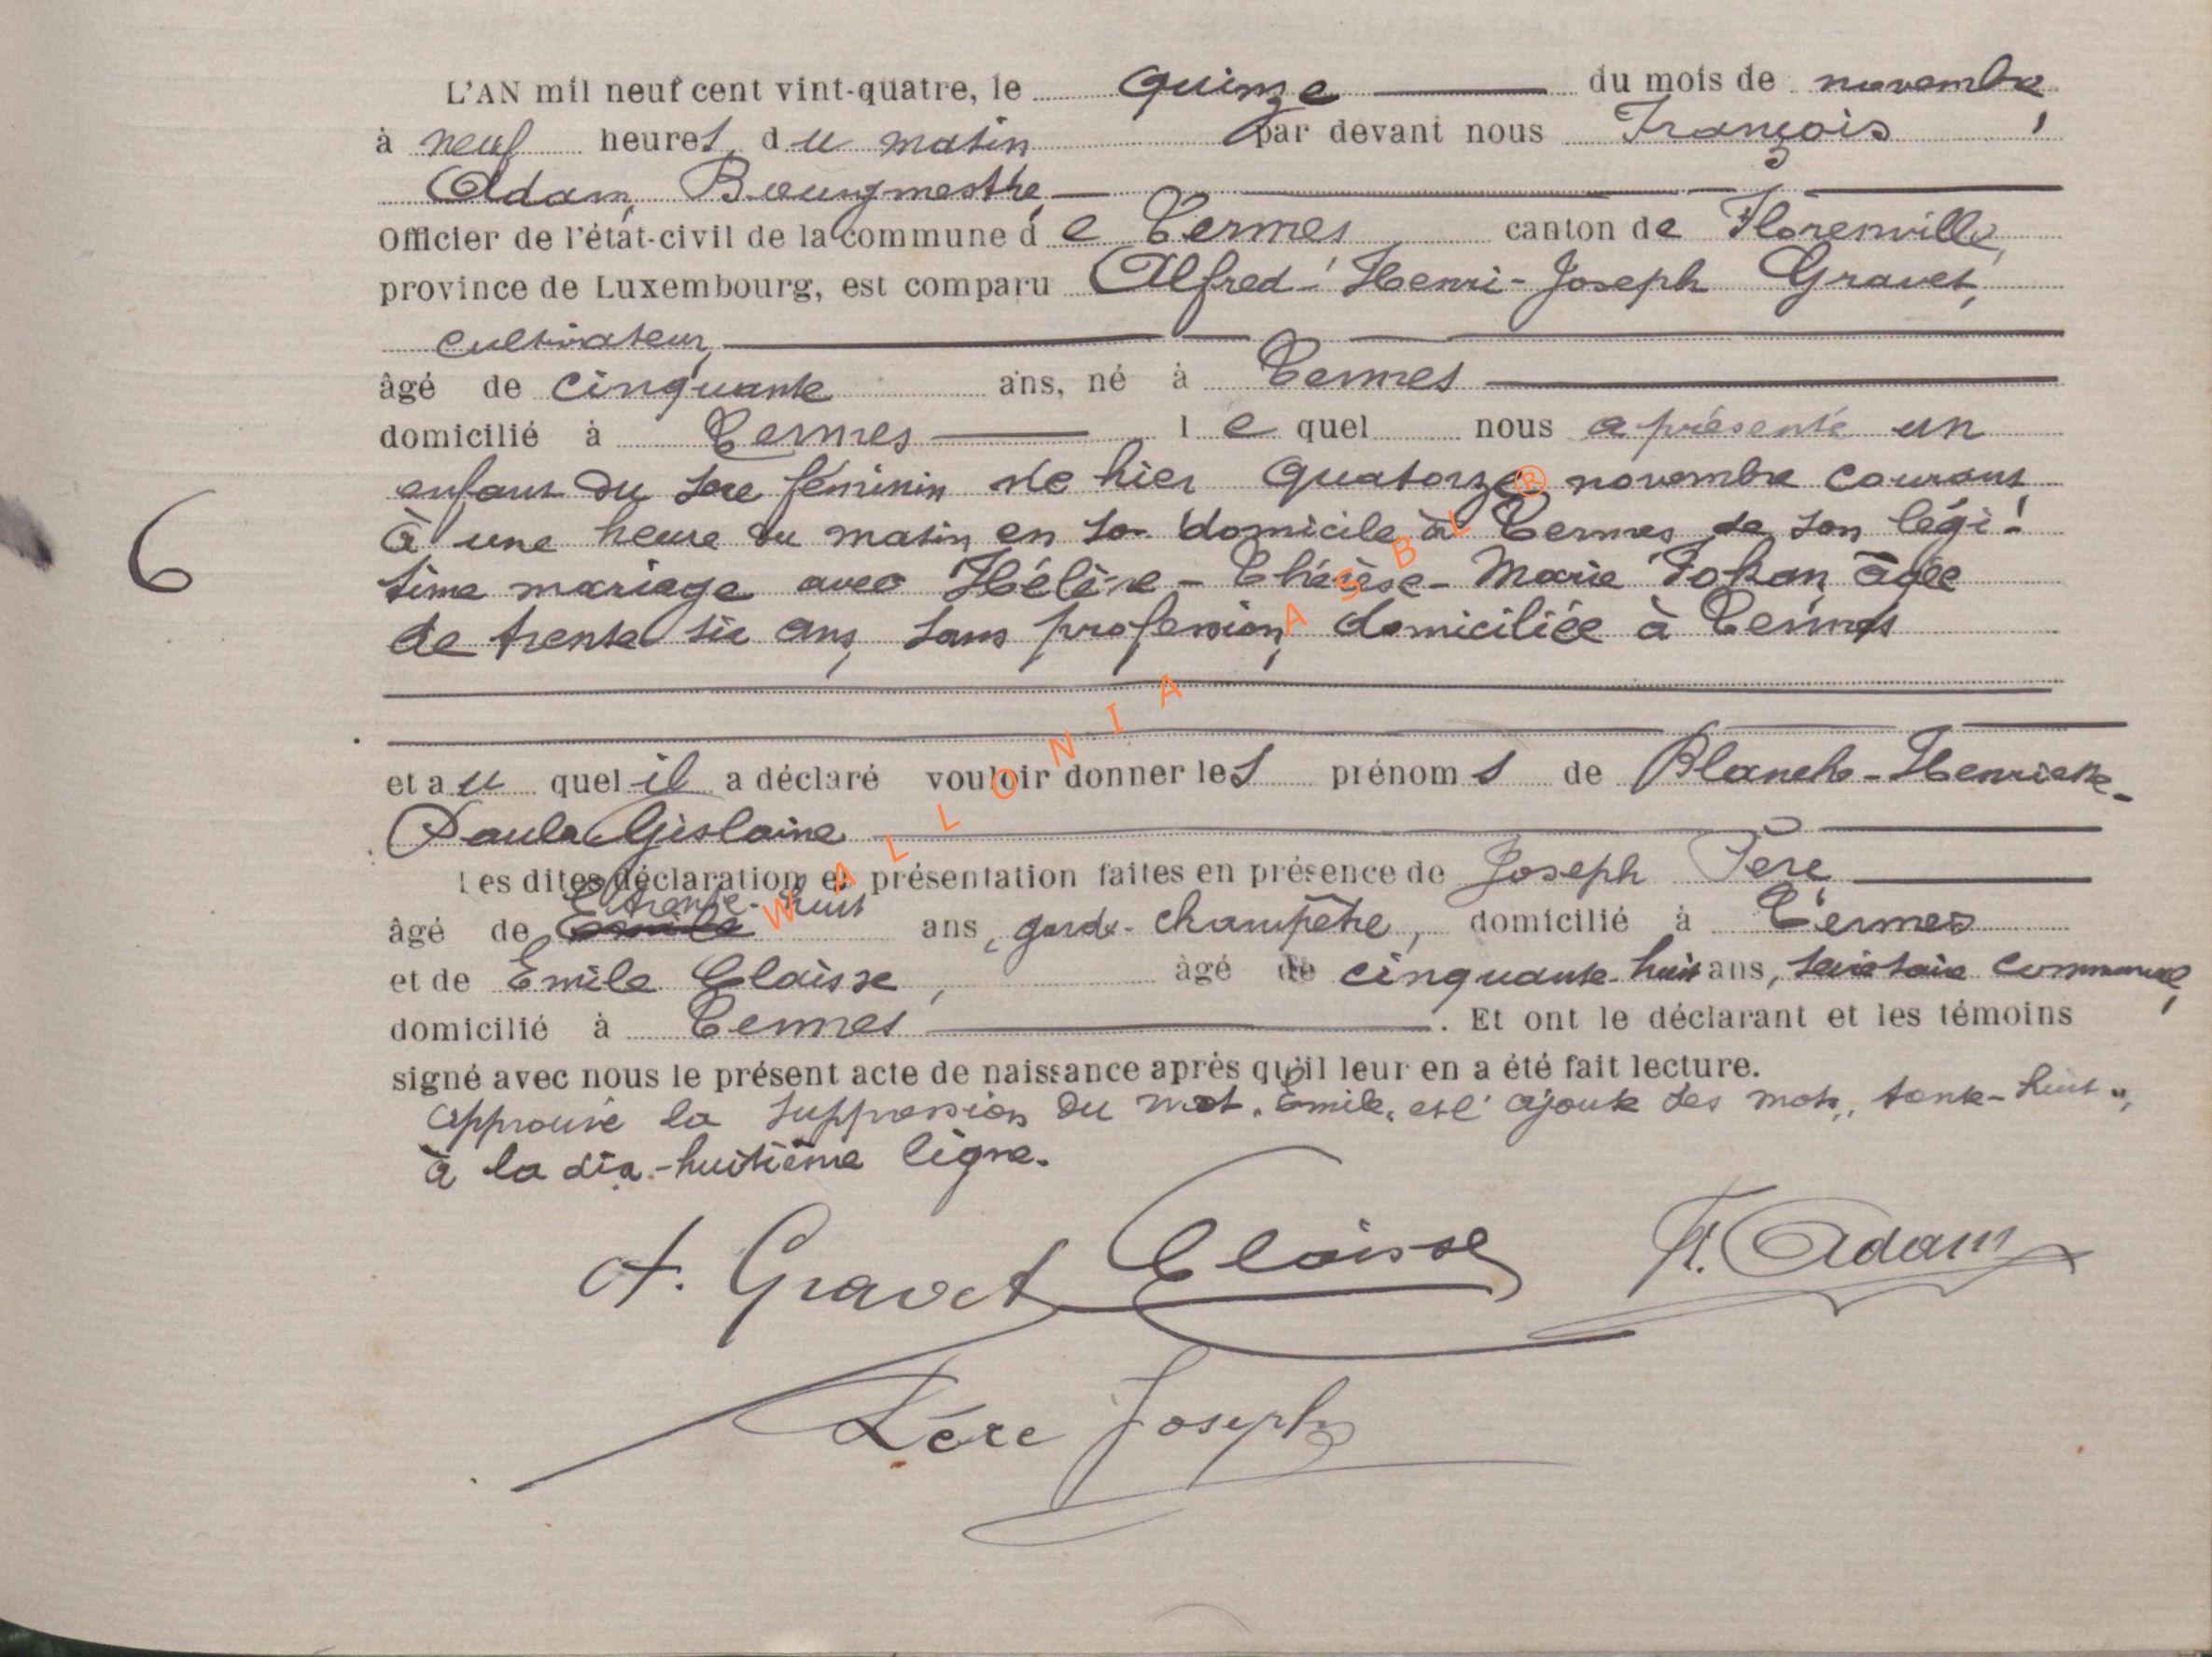 L'AN mil neuf cent vint-quatre, le quinze du mois de novembre,
à neuf heures du matin par devant nous François
Adam, Bourgmestre,
Officier de l'état-civil de la commune de Termes, canton de Florenville,
province de Luxembourg, est comparu Alfred-Henri-Joseph Gravet,
cultivateur,
âgé de cinquante ans, né à Termes
domicilié à Termes lequel nous a présenté un
enfant du sexe féminin né hier quatorze novembre courant
à une heure du matin en so domicile à Termes de son légi-
time mariage avec Hélène-Thérèse-Marie Fohan, âgée
de trente six ans, sans profession, domiciliée à Termes
et auquel il a déclaré vouloir donner les prénoms de Blanche-Henriette-
Paula Gislaine
Les dites déclaration et présentation faites en présence de Joseph Père
trente-huit
âgé de Emile ans, garde-champêtre, domicilié à Termes
et de Emile Claisse, âgé de cinquante-huit ans, secrétaire communal,
domicilié à Termes. Et ont le déclarant et les témoins
signé avec nous le présent acte de naissance après qu'il leur en a été fait lecture.
Approuvé la suppression du mot „Emile„ et l'ajoute des mots „trente-huit„
à la dix-huitième ligne.
6
A. Gravet Claisse Fr. Adam
Père Joseph
WALLONIA ASBL ®